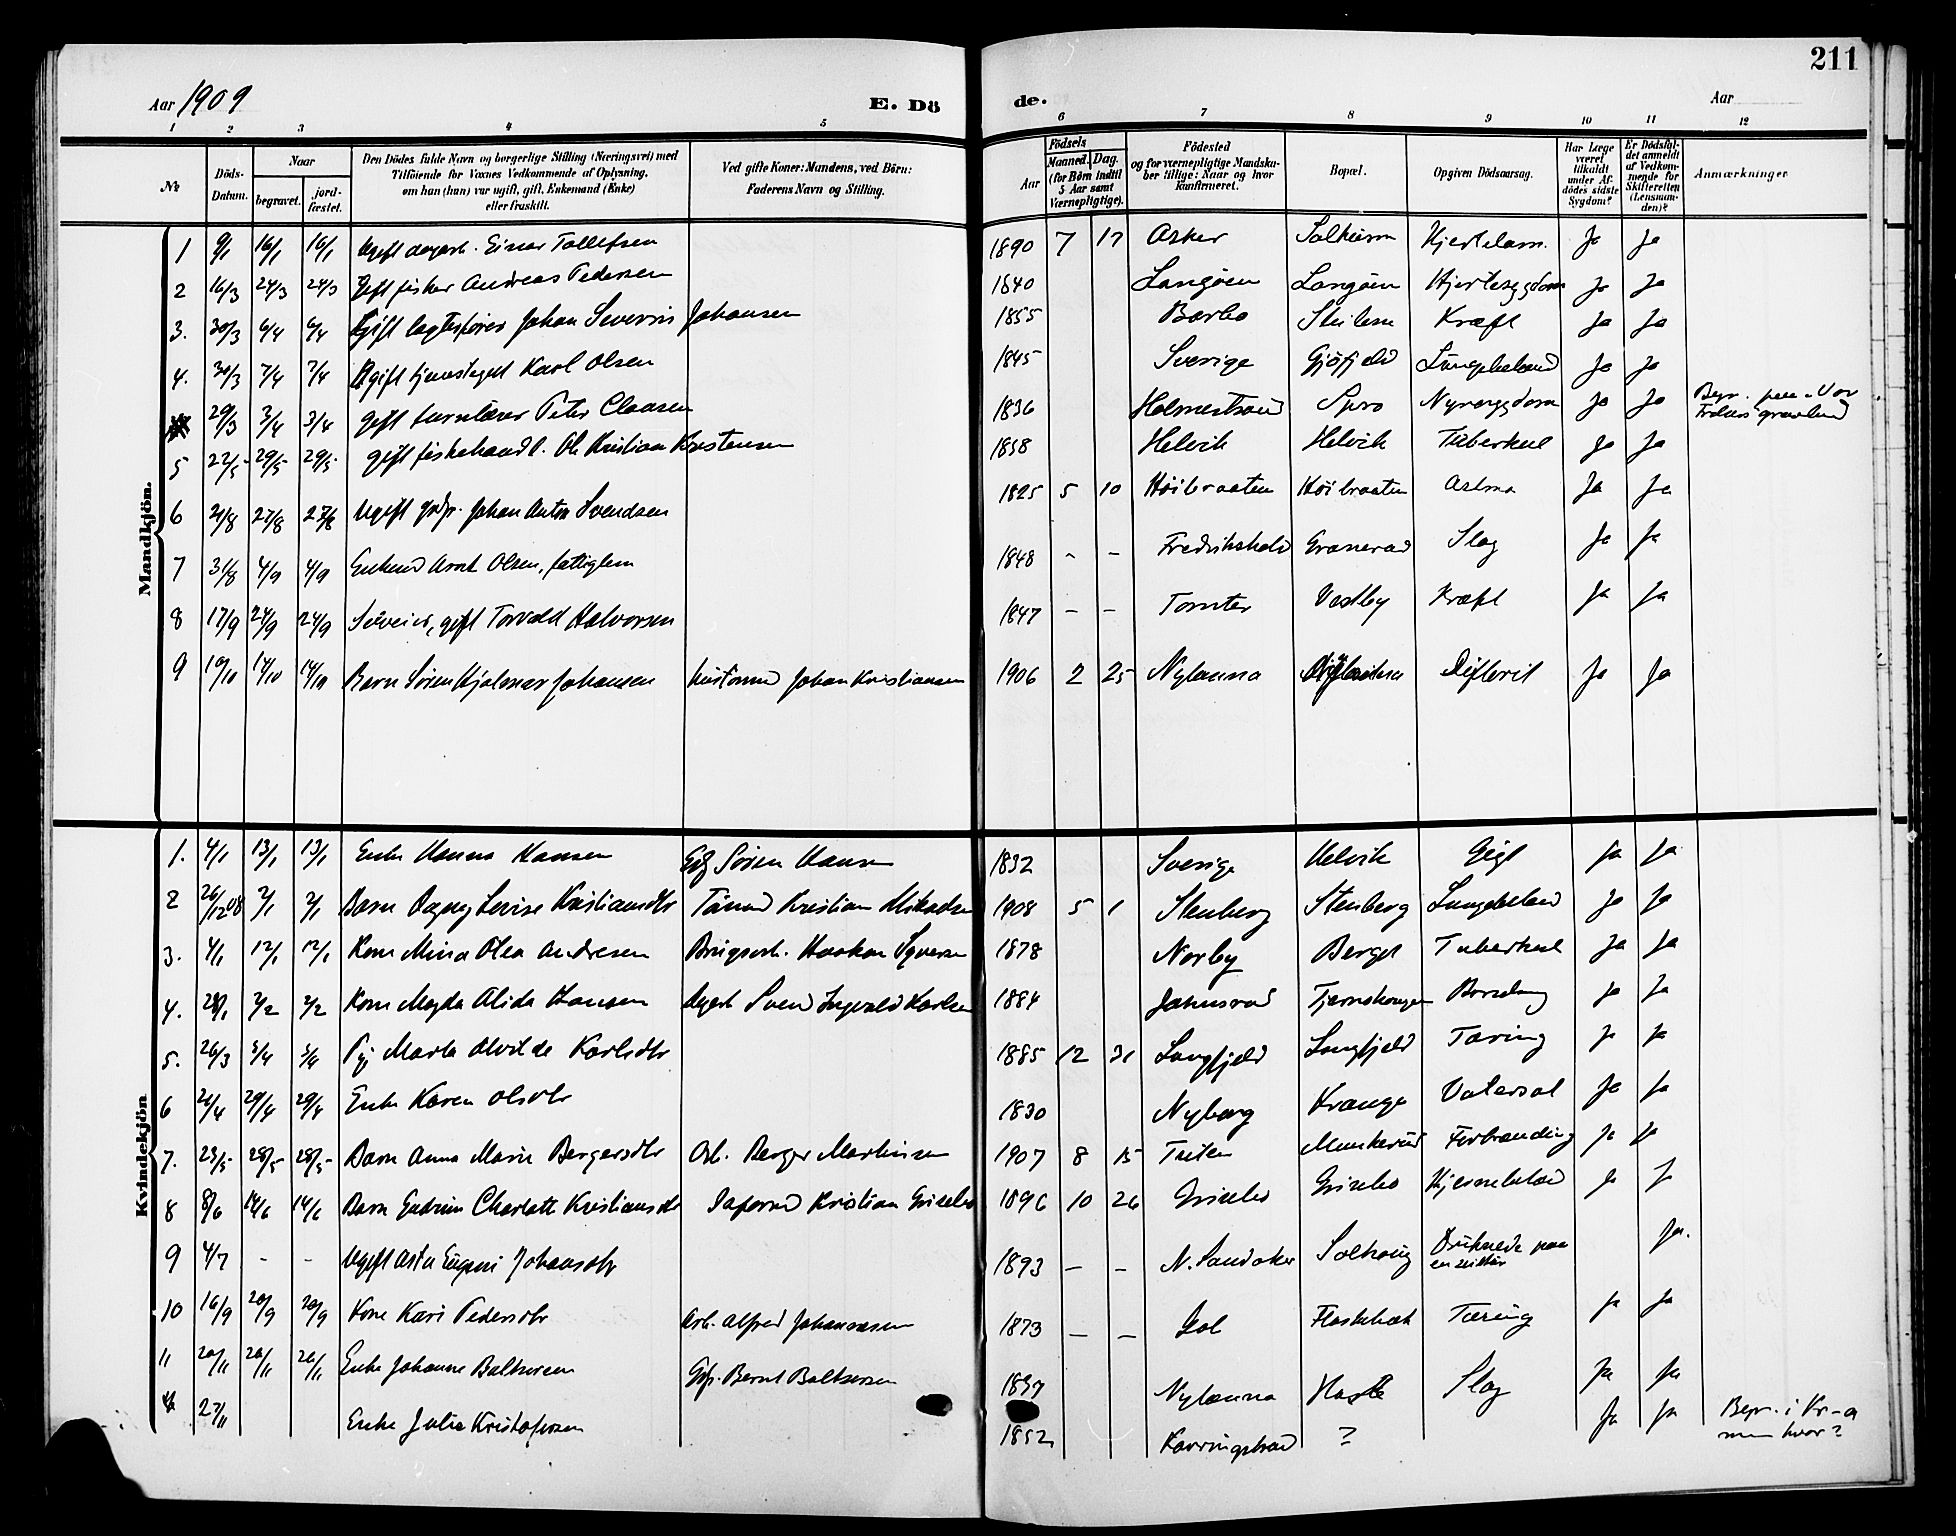 211
Aar 1909 E. Dö de. Aar
1 2 3 4 5 6 7 8 9 10 11 12
№
Döds-Datum.
Naar
begravet.
jord-fæstet.
Den Dödes fulde Navn og borgerlige Stilling (Næringsvei) med
Tilföiende for Voxnes Vedkommende af Oplysning,
om han (hun) var ugift, gift, Enkemand (Enke)
eller fraskilt.
Ved gifte Koner: Mandens, ved Börn:
Faderens Navn og Stilling.
Aar
Födsels
Maaned. Dag.
(for Börn indtil
5 Aar samt
Værnepligtige).
Födested
og for værnepligtige Mandska-
ber tillige: Naar og hvor
konfirmeret.
Bopæl.
Opgiven Dödsaarsag.
Har Læge
været
tilkaldt
under Af-
dödes sidste
Sygdom?
Er Dödsfal-
det anmeldt
af Vedkom-
mende for
Skifteretten
(Lensman-
den)?
Anmærkninger
Mandkjön.
1 9/1 16/1 16/1 Ugift dagarb. Einar Tollefsen 1890 7 17 Asker Solheim Hjertelam. Ja Ja
2 16/3 24/3 24/3 Gift fisker Andreas Pedersen 1840 Langöen Langöen Hjertesygdom Ja Ja
3. 30/3 6/4 6/4 Gift Johan Severin Johansen 1855 Barbo Steilene Kræft Ja Ja
4. 30/3 7/4 7/4 gift Karl Olsen 1845 Sverige Gjöfjeld Ja Ja
29/3 3/4 3/4 gift Peter Clausen 1836 Holmestrand Spro Nyresygdom Ja Ja Begr. paa Vor
Frelsers gravlund
5 22/5 29/5 29/5 gift fiskehandl. Ole Kristian Kristensen 1858 Helvik Helvik Tuberkul Ja Ja
6 21/8 27/8 27/8 Ugift Johan Anton Svendsen 1825 5 10 Höibraaten Höibraaten Astma Ja Ja
7 31/8 4/9 4/9 Enkem Arnt Olsen, fattiglem 1848 - - Fredrikshald Granerud Slag Ja Ja
8 17/9 24/9 24/9 gift Torvald Halvorsen 1847 - - Tomter Vestby Kræft Ja Ja
9 10/10 14/10 14/10 Barn Sören Hjalmar Johansen Johan Kristiansen 1906 2 25 Nylænna Difterit Ja Ja
Kvindekjön
1. 4/1 13/1 13/1 Enke Hanna Hansen Sören Hansen 1832 Sverige Helvik Gigt Ja Ja
2 26/12 08 2/1 2/1 Barn Dagny Lovise Kristiansdtr Kristian 1908 5 1 Stenberg Stenberg Ja Ja
3. 4/1 12/1 12/1 Kone Mina Olea Andresen Haakon 1878 Norby Berget Tuberkul Ja Ja
4. 28/1 2/2 2/2 Kone Magda Alida Hansen Sven Ingvald Karlsen 1884 Ja Ja
5. 26/3 Marta Alvilde Karlsdtr 1885 12 21 Langfjeld Langfjeld Tæring Ja Ja
6 21/4 29/4 29/4 Enke Karen Olsdtr 1830 Nyborg Krange Vatersot Ja Ja
7. 23/5 28/5 28/5 Barn Anna Marie Bergersdtr Arb. Berger Martinsen 1907 8 15 Munkerud Forbrænding Ja Ja
8 8/6 14/6 14/6 Barn Gudrun Charlotte Kristiansdtr Kristian Grisebo 1896 10 26 Grisebo Grisebo Ja J
9 4/7 - - Ugift Asta Eugeni Johansdtr 1893 - - N. Sandaker Solhaug Druknede paa Ja.
10 16/9 20/9 20/9 Kone Kari Pedersdtr Arb. Alfred Johannesen 1873 - - Gol Flaskebæk Tæring Ja Ja
11 20/11 26/11 26/11 Enke Johanne Baltsersen Bernt Baltsersen 1837 Nylænna Slag Ja Ja
27/11 Enke Julie Kristofersen 1852 ? Ja Ja Begr. i Kr-a
men hvor?